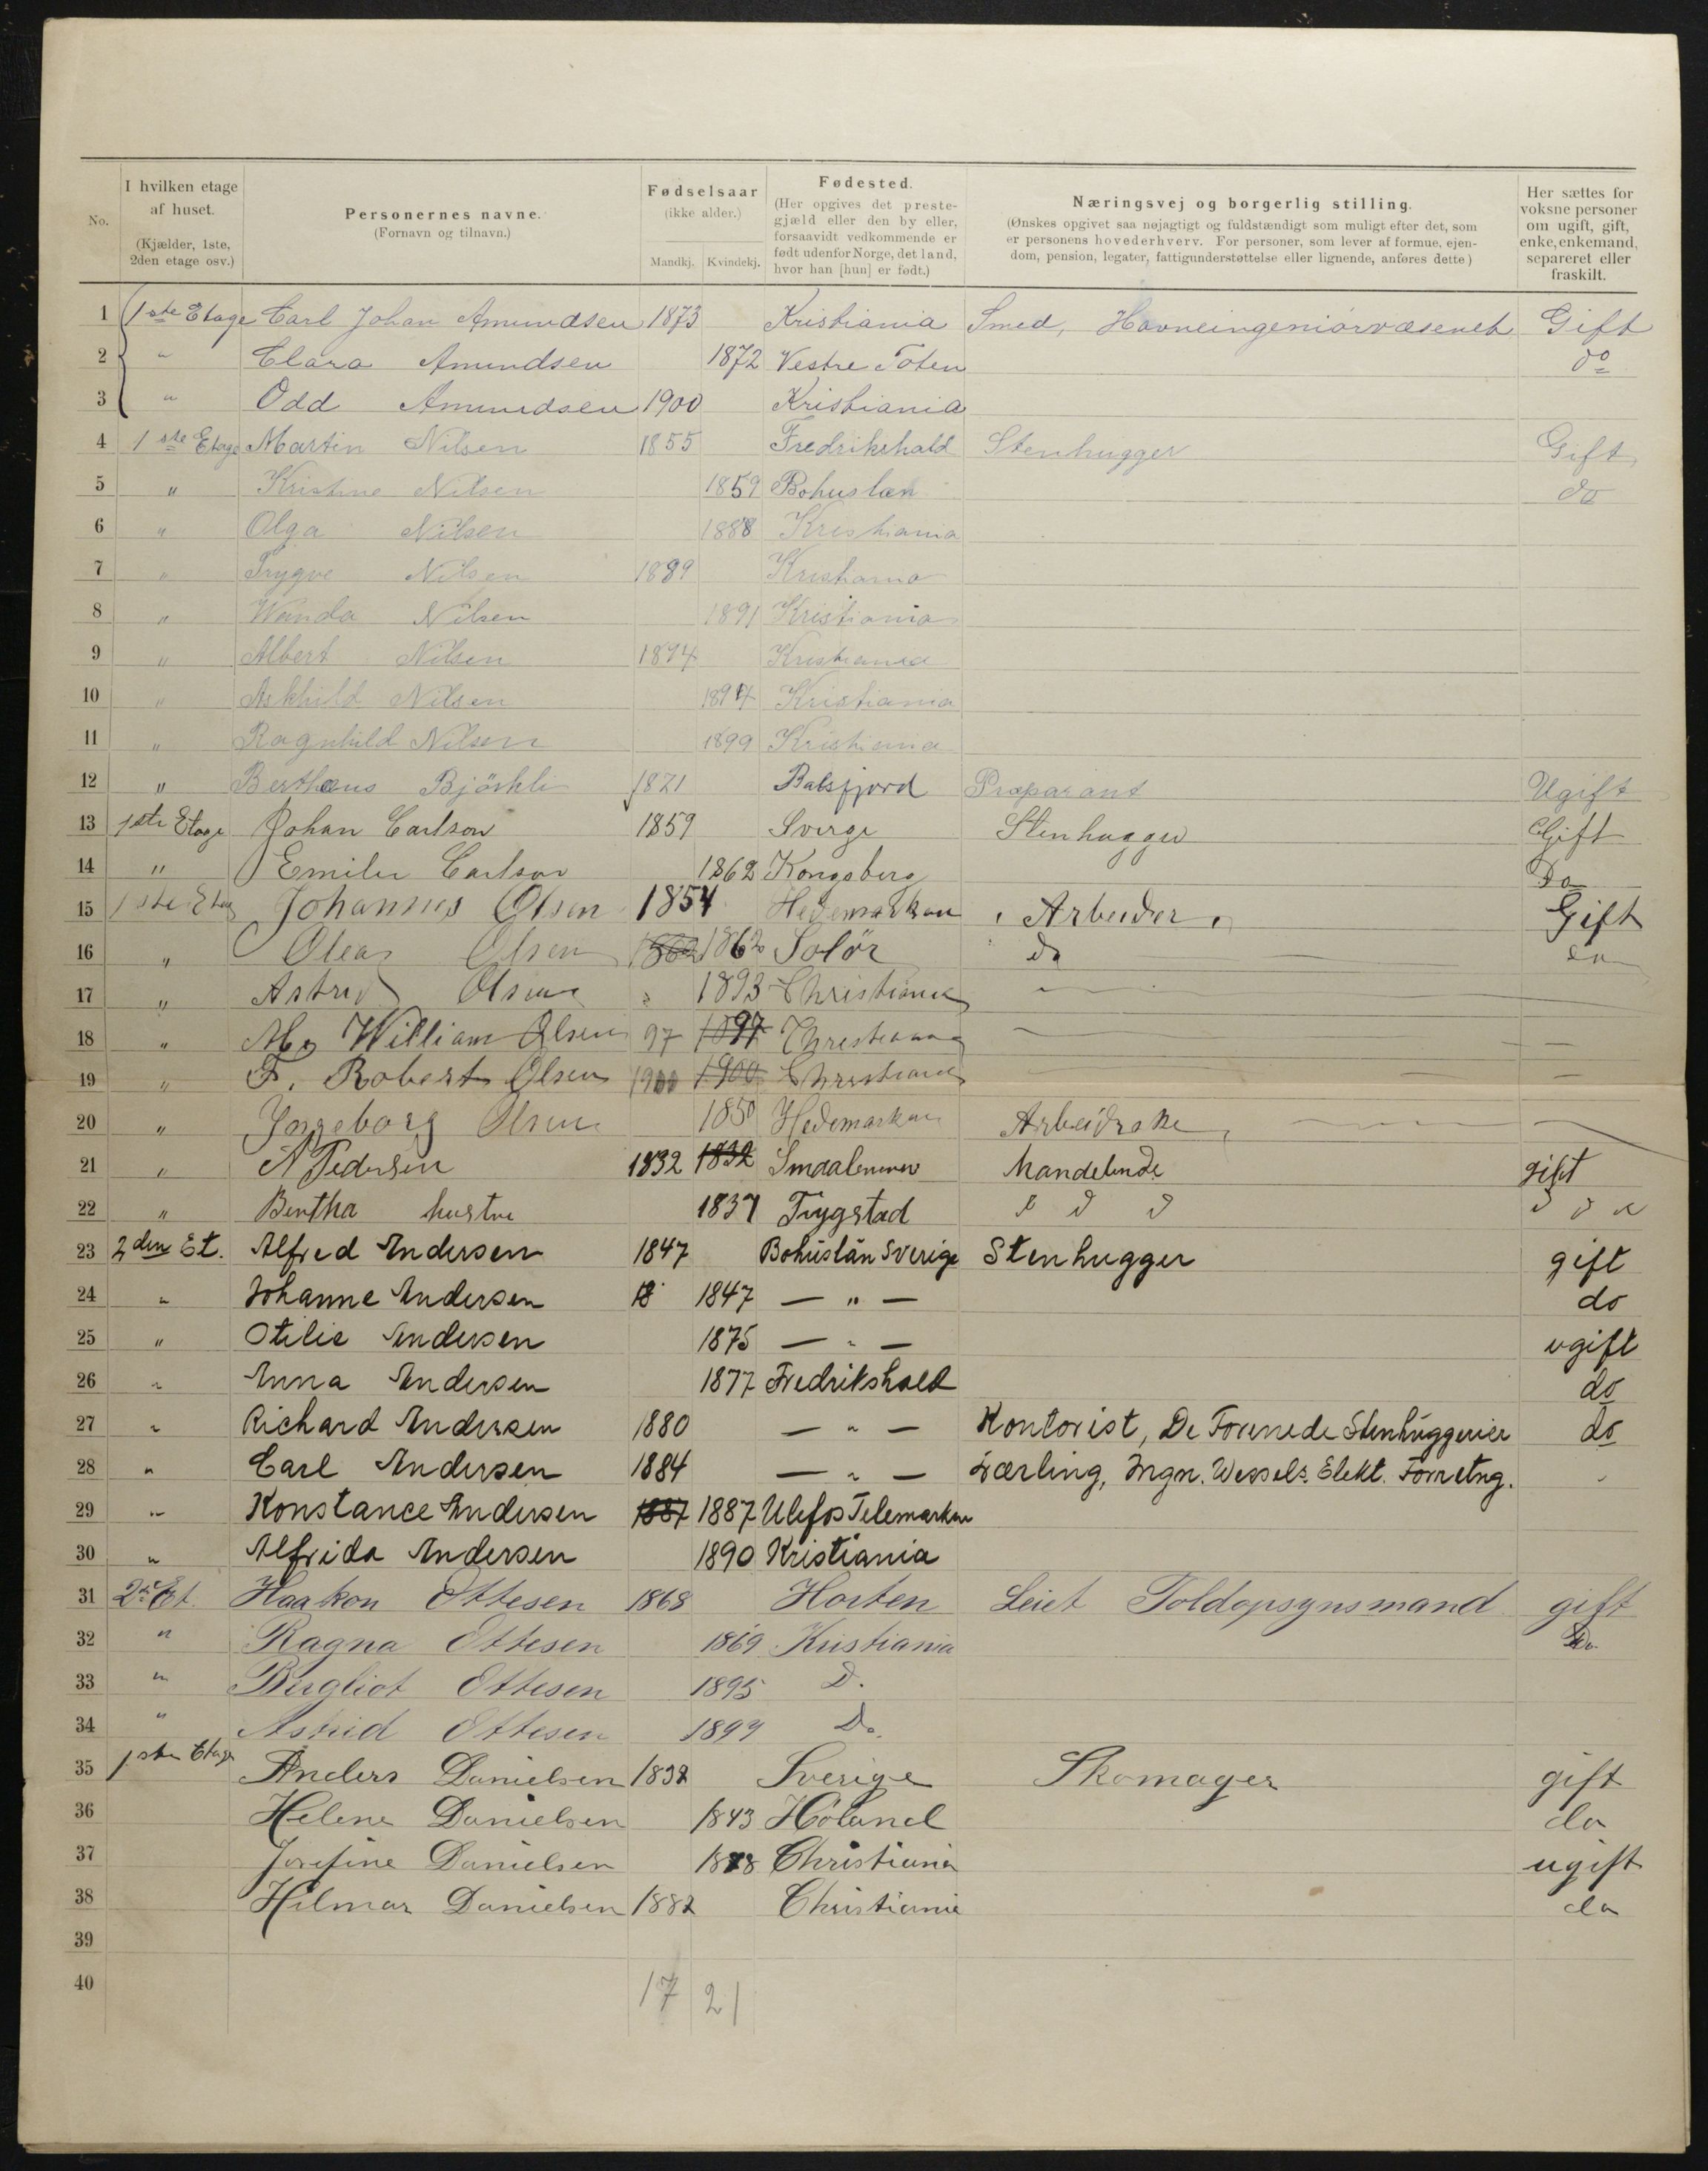 No.
I hvilken etage af huset. (Kjælder, 1ste, 2den etage osv.)
Personernes navne. (Fornavn og tilnavn.)
Fødselsaar (ikke alder.) Mandkj. Kvindekj.
Fødested. (Her opgives det prestegjæld eller den by eller, forsaavidt vedkommende er født udenfor Norge, det land, hvor han [hun] er født.)
Næringsvej og borgerlig stilling. (Ønskes opgivet saa nøjagtigt og fuldstændigt som muligt efter det, som er personens hovederhverv. For personer, som lever af formue, ejendom, pension, legater, fattigunderstøttelse eller lignende, anføres dette)
Her sættes for voksne personer om ugift, gift, enke, enkemand, separeret eller fraskilt.
1 1ste Etage Carl Johan Amundsen 1873 Kristiania Smed, Havneingeniørvæsenet Gift
2 " Clara Amundsen 1872 Vestre Toten do
3 " Odd Amundsen 1900 Kristiania
4 1ste Etage Martin Nilsen 1855 Fredrikshald Stenhugger Gift
5 " Kristine Nilsen 1859 Bohuslæn do
6 " Olga Nilsen 1888 Kristiania
7 " Trygve Nilsen 1889 Kristiania
8 " Wanda Nilsen 1891 Kristiania
9 " Albert Nilsen 1894 Kristiania
10 " Askhild Nilsen Kristiania
11 " Ragnhild Nilsen 1899 Kristiania
12 " Bertheus Bjørkli Balsfjord Præparant Ugift
13 1ste Etage Johan Carlson 1859 Sverge Stenhugger Gift
14 " Emilie Carlson 1862 Kongsberg Do
15 1ste Etag Johannes Olsen 1854 Hedemarken Arbeider Gift
16 " Olea Olsen 1862 1862 Solör do do
17 " Astrid Olsen " 1893 Christiania
18 " William Olsen 97 1897 Christiania
19 " F. Robert Olsen 1900 1900 Christiania
20 " Ingeborg Olsen 1850 Hedemarken Arbeidrske
21 " A Pedersen 1832 1832 Smaalenene Mandelinde gift
22 " Bertha hustru 1837 Trygstad
23 2den Et. Alfred Andersen 1847 Bohuslän Sverige Stenhugger gift
24 " Johanne Andersen 18 1847 — " — do
25 " Otilie Andersen 1875 — " — ugift
26 " Anna Andersen 1877 Fredrikshald do
27 " Richard Andersen 1880 — " — Kontorist, De Forenede Stenhuggerier do
28 " Carl Andersen 1884 — " — Lærling, Ingn. Wessels. Elekt. Forretng. "
29 " Konstance Andersen 1887 1887 Ulefos Telemarken
30 " Alfrida Andersen 1890 Kristiania
31 2den Et. Haakon Ottesen 1868 Horten Leiet Toldopsynsmand gift
32 " Ragna Ottesen 1869 Kristiania Do
33 " Bergliot Ottesen 1895 D.
34 " Astrid Ottesen 1899 Do
35 1ste Etage Anders Danielsen 1832 Sverige Skomager gift
36 Helene Danielsen 1843 Höland do
37 Josefine Danielsen 1878 Christiania ugift
38 Hilmar Danielsen 1882 Christiania do
39
40
17 21